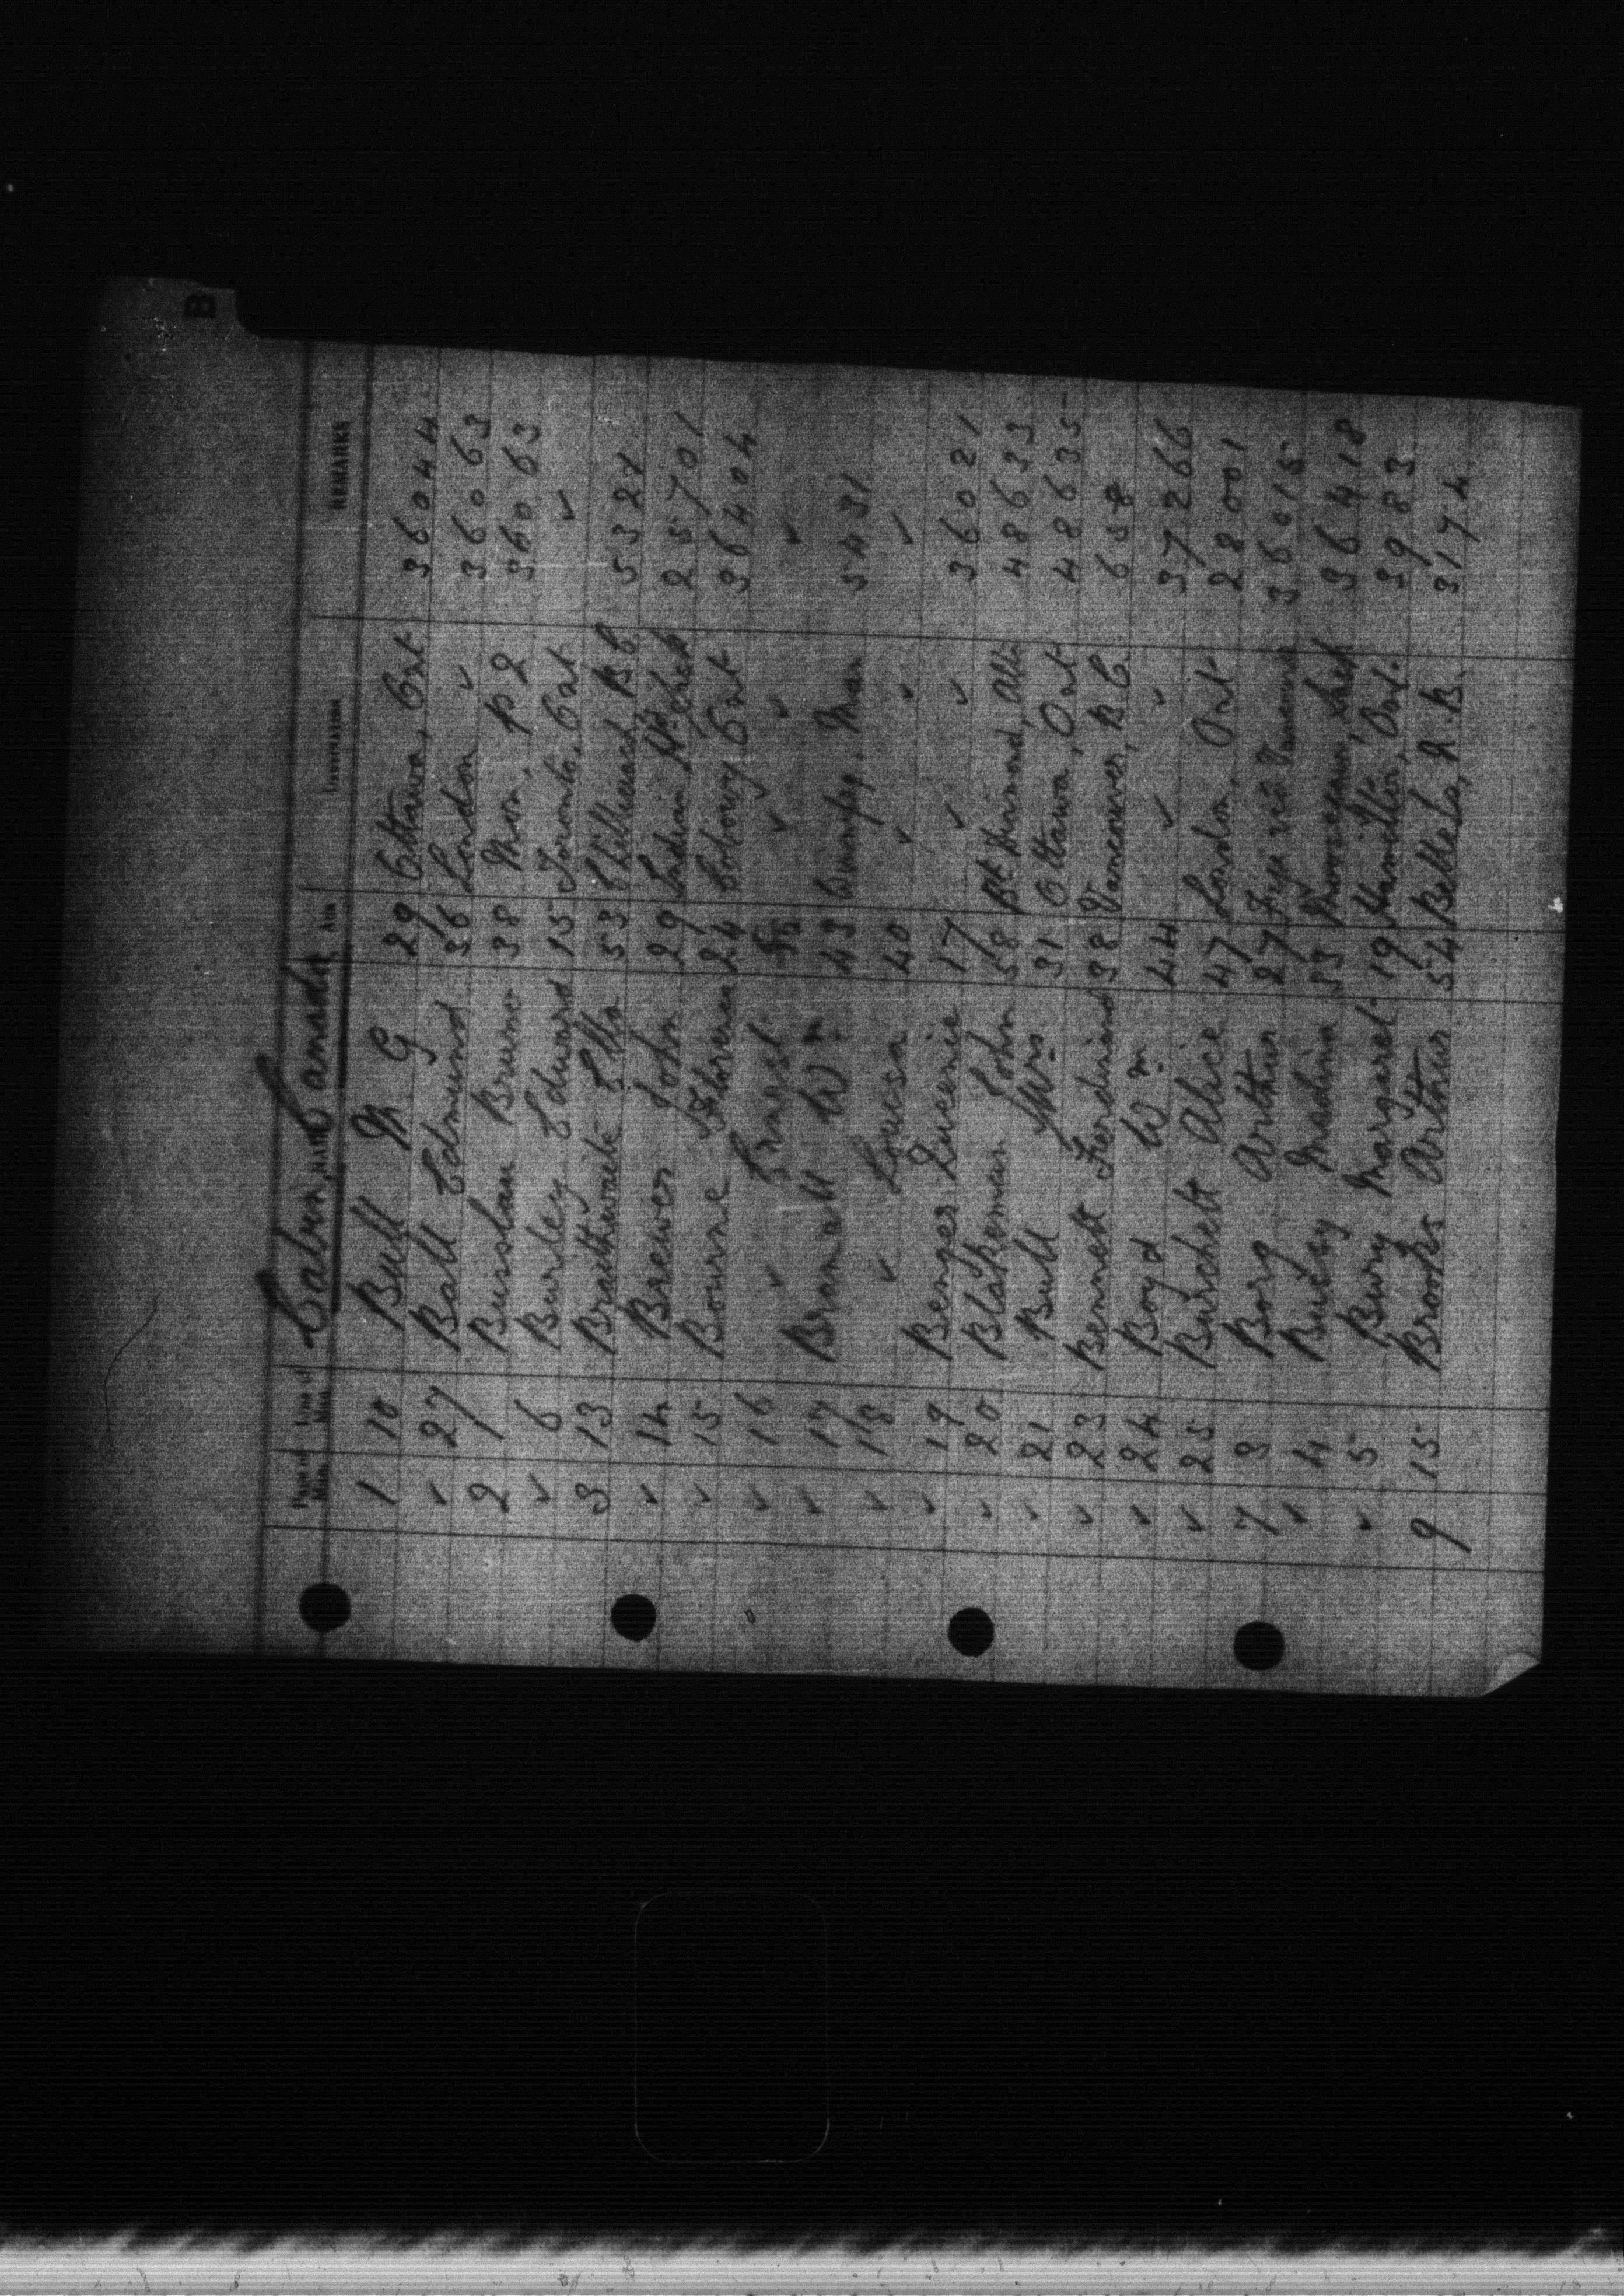 B
Cabin, Canada
Page of Man. Line of Man. NAME AGE DESTINATION REMARKS
1 10 Bull M G 29 Ottawa, Ont 36044
✓ 27 Ball Edmund 36 London ✓ 36063
2 1 Busslau Bruno 38 Mon. P Q 36063
✓ 6 Burley Edward 15 Toronto, Ont ✓
3 13 Braithwaite Ella 53 Chilliwack, B C 5321
✓ 14 Brewer John 29 Indian Hd, Sask 25701
✓ 15 Bourne Florence 24 Cobourg Ont 36404
✓ 16 ✓ Ernest ✓ ✓ ✓
✓ 17 Bramall Wm 43 Winnipeg, Man 5431
✓ 18 ✓ Louisa 40 ✓ ✓ ✓
✓ 19 Benger Lucenie 17 ✓ ✓ 36021
✓ 20 Blakeman John 58 Alb. 48633
✓ 21 Bull Mrs 31 Ottawa, Ont 48635
✓ 23 Bennett Ferdinand 38 Vancouver, B.C. 658
✓ 24 Boyd Wm 44 ✓ ✓ 37266
✓ 25 Burchett Alice 47 London, Ont 28001
7 3 Borg Arthur 27 Fiji via Vancouver 36015
✓ 4 Madina 33 Moosejaw, Sask 36418
✓ 5 Bury Margaret 19 Hamilton, Ont. 3983
9 15 Brooks Arthur 54 N.B. 3174